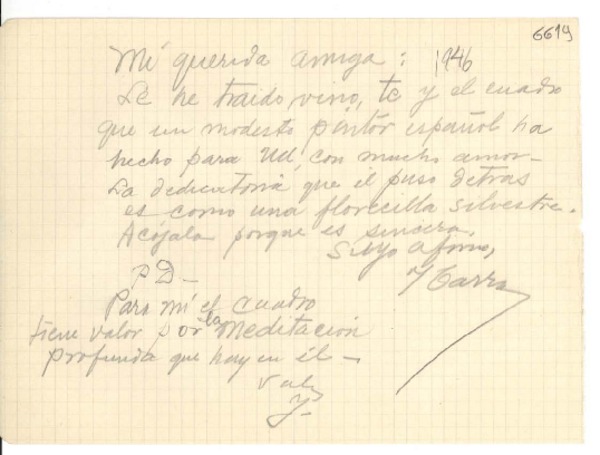 6619
Mi querida amiga: 1946
Le he traido, vino, te y el cuadro
que un modesto pintor español ha
hecho para Ud, con mucho amor -
La dedicatoria que el puso detras
es como una florecilla silvestre.
Acojala porque es sincera.
Suyo afmo,
P.D. -
Para mi el cuadro
tiene valor por la meditación
profunda que hay en él -
Y.